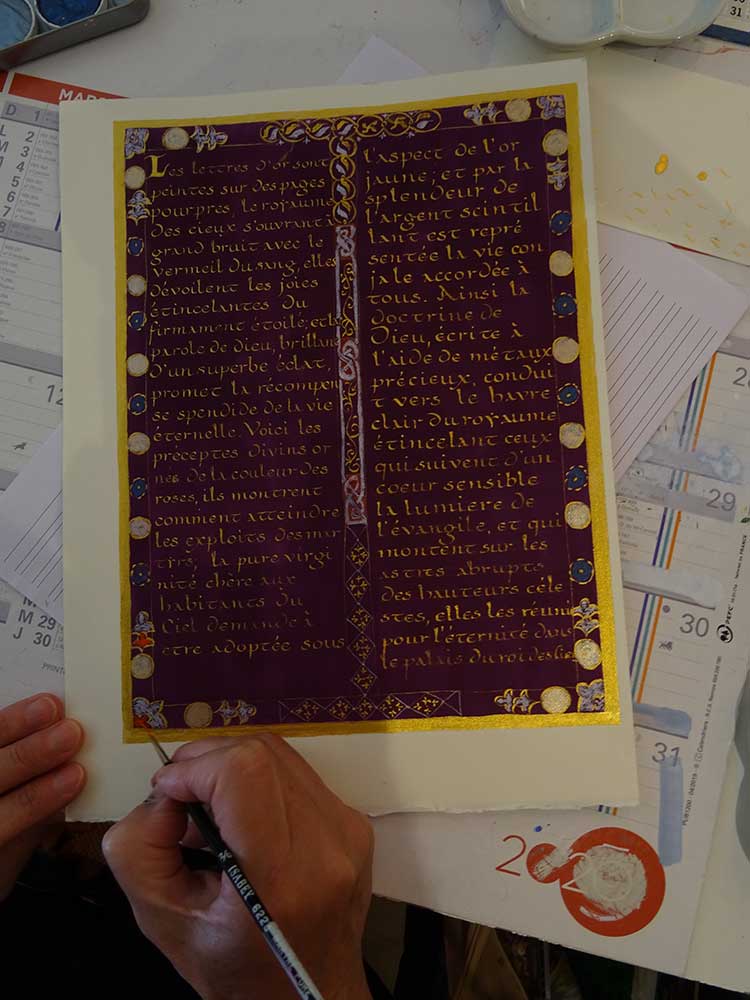 Les lettres d'or sont
peintes sur des pages
pourpres, le royaume
Des cieux s'ouvrant à
grand bruit avec le
vermeil du sang, elles
dévoilent les joies
étincelantes du
firmament étoilé, et la
parole de dieu, brillant
d'un superbe éclat,
promet la récompen
se spendide de la vie
éternelle. Voici les
préceptes divins or
nés de la couleur des
roses, ils montrent
comment atteindre
les exploits des mar
tyrs, la pure virgi
nité chère aux
habitants du
Ciel demande à
etre adoptée sous
l'aspect de l'or
jaune; et par la
splendeur de
l'argent scintil
lant est repré
sentée la vie con
jale accordée à
tous. Ainsi la
doctrine de
Dieu, écrite à
l'aide de métaux
précieux, condui
t vers le havre
clair du royaume
étincelant ceux
qui suivent d'un
coeur sensible
la lumiere de
l'évangile, et qui
montent sur les
astres abrupts
des hauteurs céle
stes, elles les réunit
pour l'éternité dans
le palais du roi des
ISABEY 6229
MARS
D 1
L 2
M 3
M 4
5
6
7
8
12
M 29
J 30
31
29
30
31
PEFC